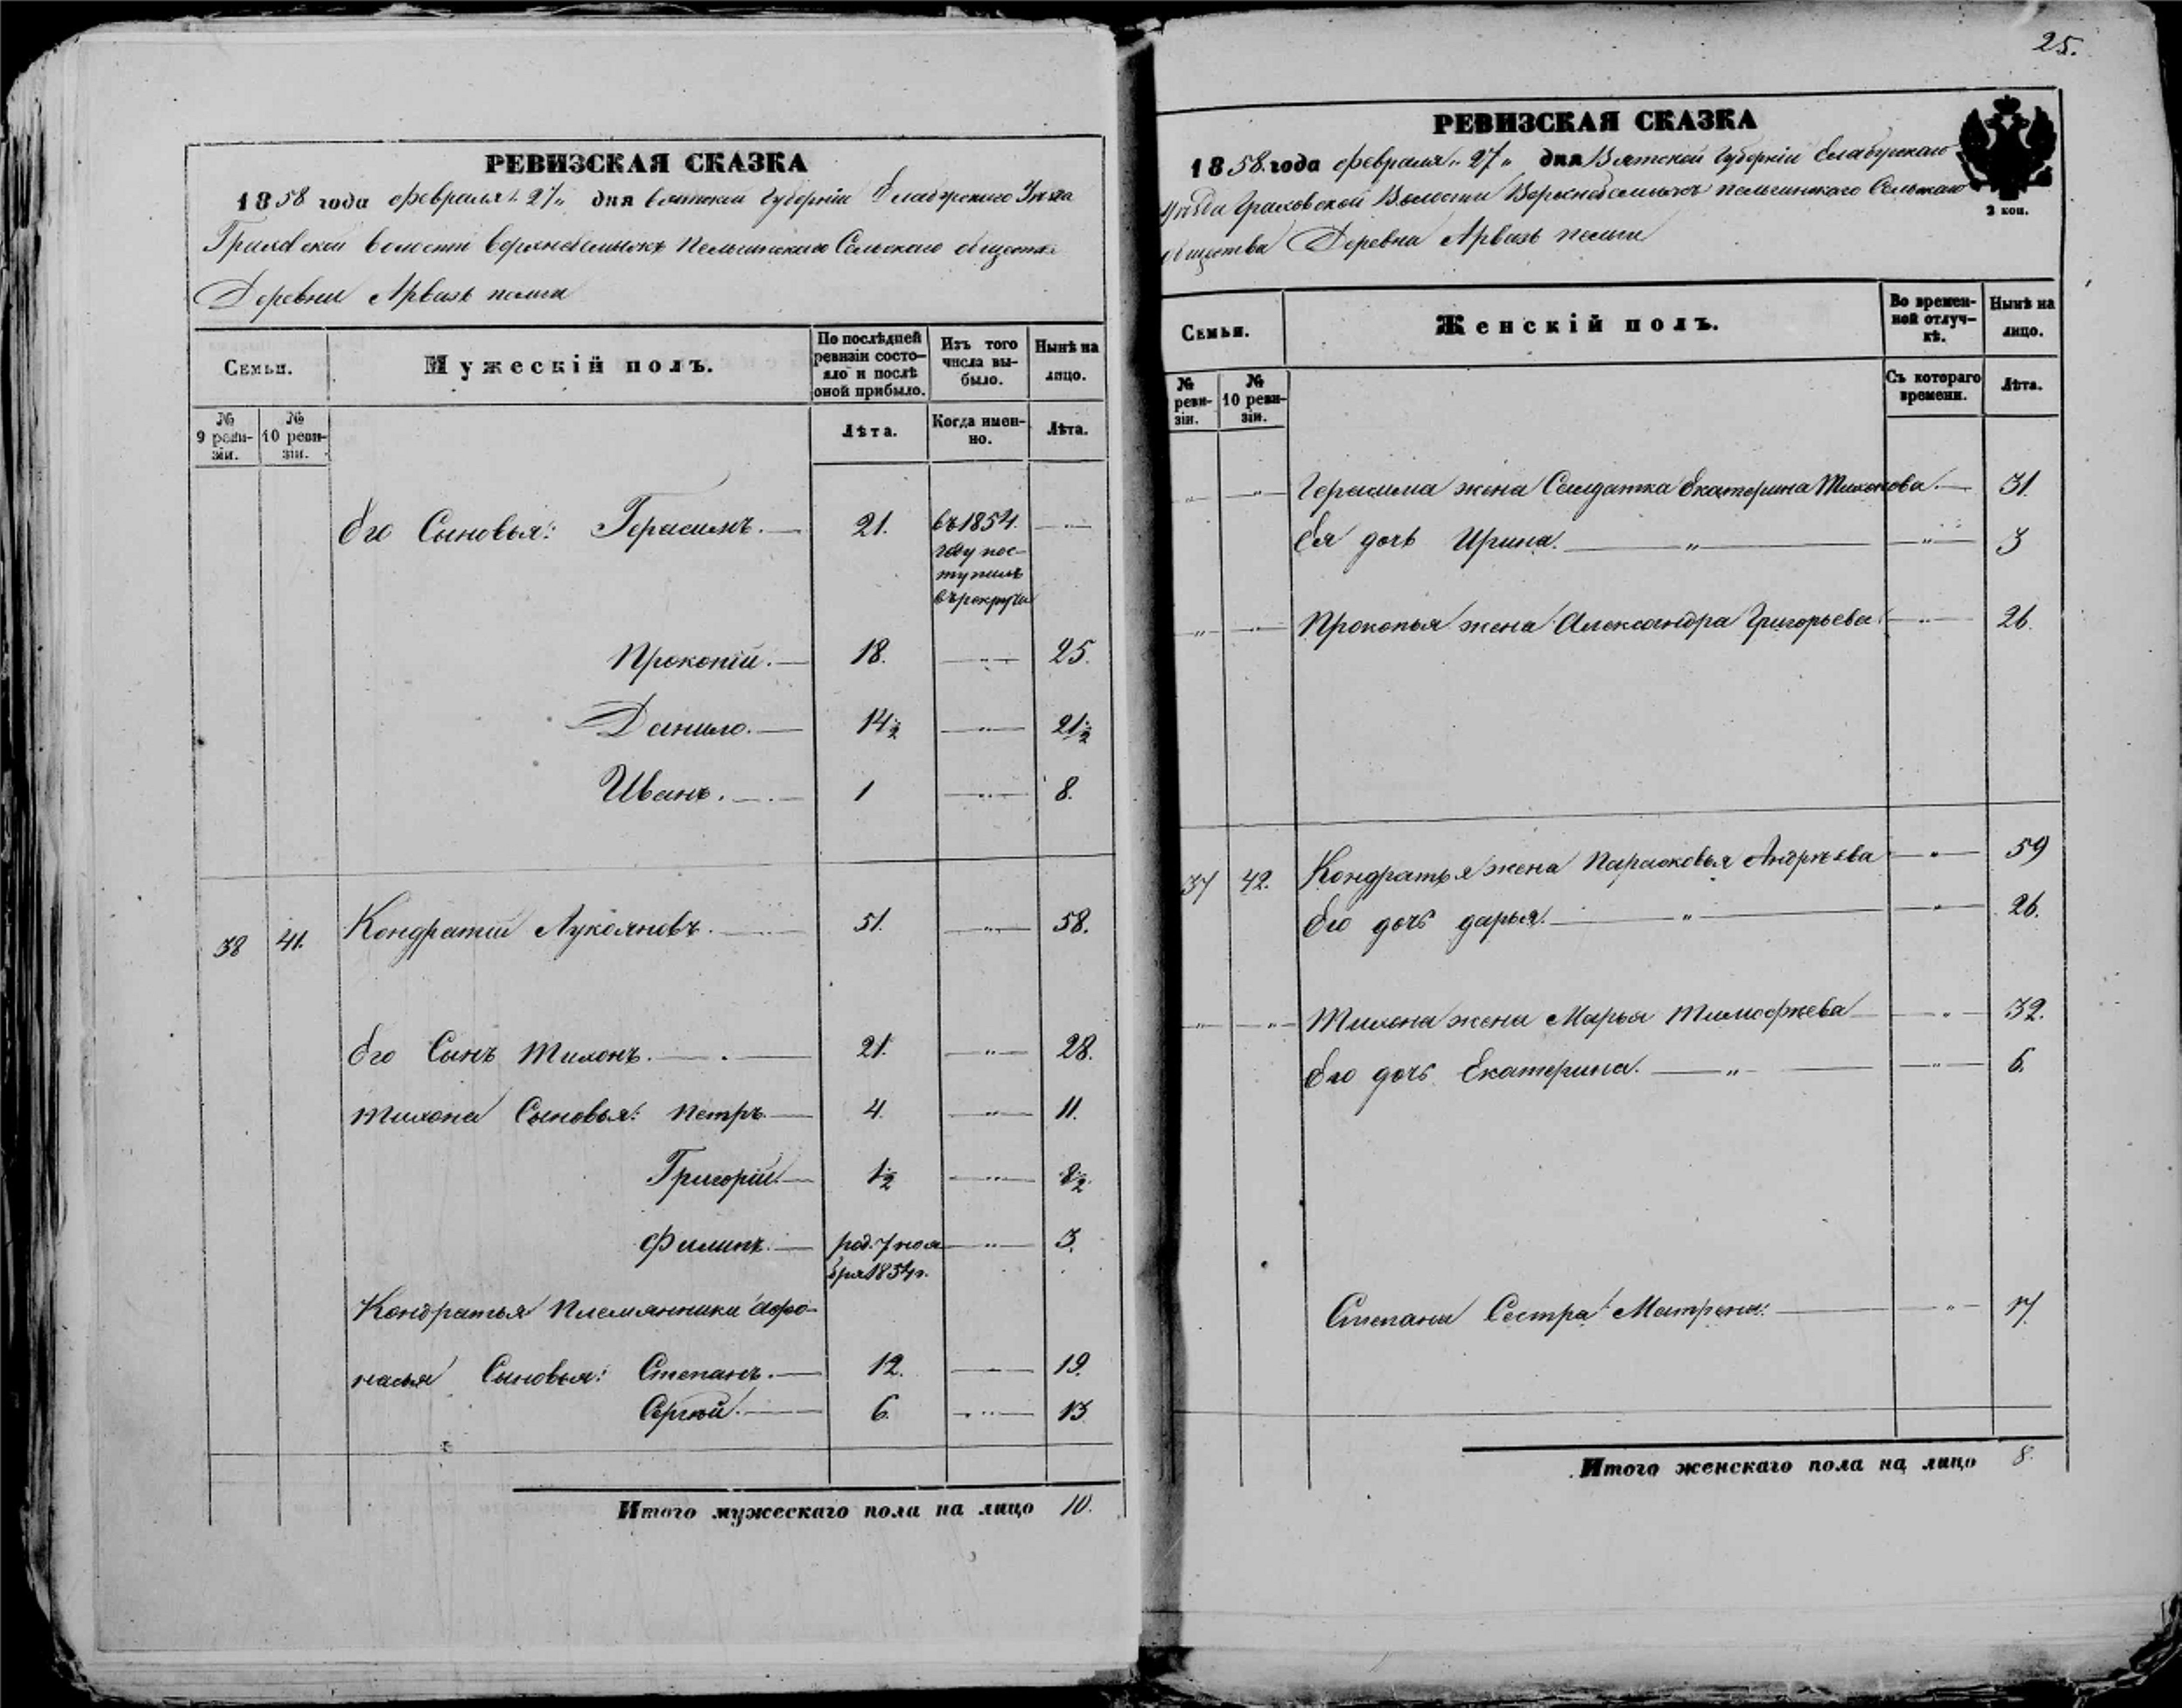 РЕВИЗСКАЯ СКАЗКА
1858 года февраля 27 дня Вятской Губерніи Елабужского Уезда
Граховской волости Сельского общества
Деревни Арвазь пельги
Семьи.
Мужескій полъ.
По послѣдней ревизіи состояло и послѣ оной прибыло.
Изъ того числа выбыло.
Нынѣ на лицо.
№ 9 ревизіи.
№ 10 ревизіи.
Лѣта.
Когда именно.
Лѣта.
Его Сыновья: Герасимъ. 21. въ 1854.
году пос-
тупилъ
въ рекруты
Прокопій. 18. 25.
Данило. 14½ 21½
Иванъ. 1 8.
38 41. Кондратій Лукояновъ. 51. 58.
Его Сынъ Тихонъ. 21. 28.
Тихона Сыновья: Петръ. 4. 11.
Григорій. 1½ 8½
Филипъ. род. 7 ноя 3.
бря 1854 г.
Кондратья Племянники Афо-
насья Сыновья: Степанъ. 12. 19.
Сергѣй. 6. 13.
Итого мужескаго пола на лицо 10.
25.
РЕВИЗСКАЯ СКАЗКА
1858. года февраля „27„ дня Вятской Губерніи Елабужскаго
Уѣзда Граховской Волости Сельскаго
общества Деревна Арвазь пельги
2 коп.
Семьи.
Женскій полъ.
Во временной отлучкѣ.
Нынѣ на лицо.
№ ревизіи.
№ 10 ревизіи.
Съ котораго времени.
Лѣта.
Герасима жена Солдатка Екатерина Тихонова. 31.
Ея дочь Ирина. 3
Прокопья жена Александра Григорьева. 26.
37 42. Кондратья жена Парасковья Андрѣева 59
Его дочь дарья. 26.
Тихона жена Марья Тимофѣева 32.
Его дочь Екатерина. 6.
Степана Сестра Матрена: 17.
Итого женскаго пола на лицо 8.